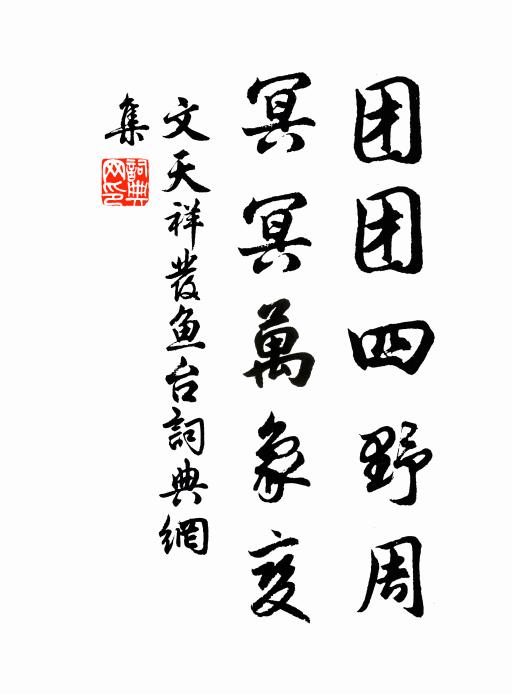 团团四野周
冥冥萬象变
文天祥發鱼台詞典網
集
詞典網印